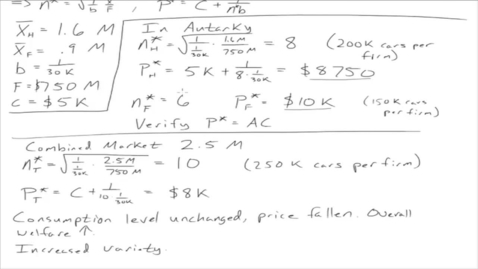 => n* = √(1/b · X/F) , P* = C + 1/(n*b)
X̄_H = 1.6 M
X̄_F = .9 M
b = 1/30K
F = $750 M
C = $5K
In Autarky
n*_H = √(1/(1/30K) · 1.6M/750M) = 8 (200K cars per firm)
P*_H = 5K + 1/(8 · 1/30K) = $8750
n*_F = 6 P*_F = $10K (150K cars per firm)
Verify P* = AC
Combined Market 2.5 M
n*_T = √(1/(1/30K) · 2.5M/750M) = 10 (250K cars per firm)
P*_T = C + 1/(10 · 1/30K) = $8K
Consumption level unchanged, price fallen. Overall
welfare ↑.
Increased variety.